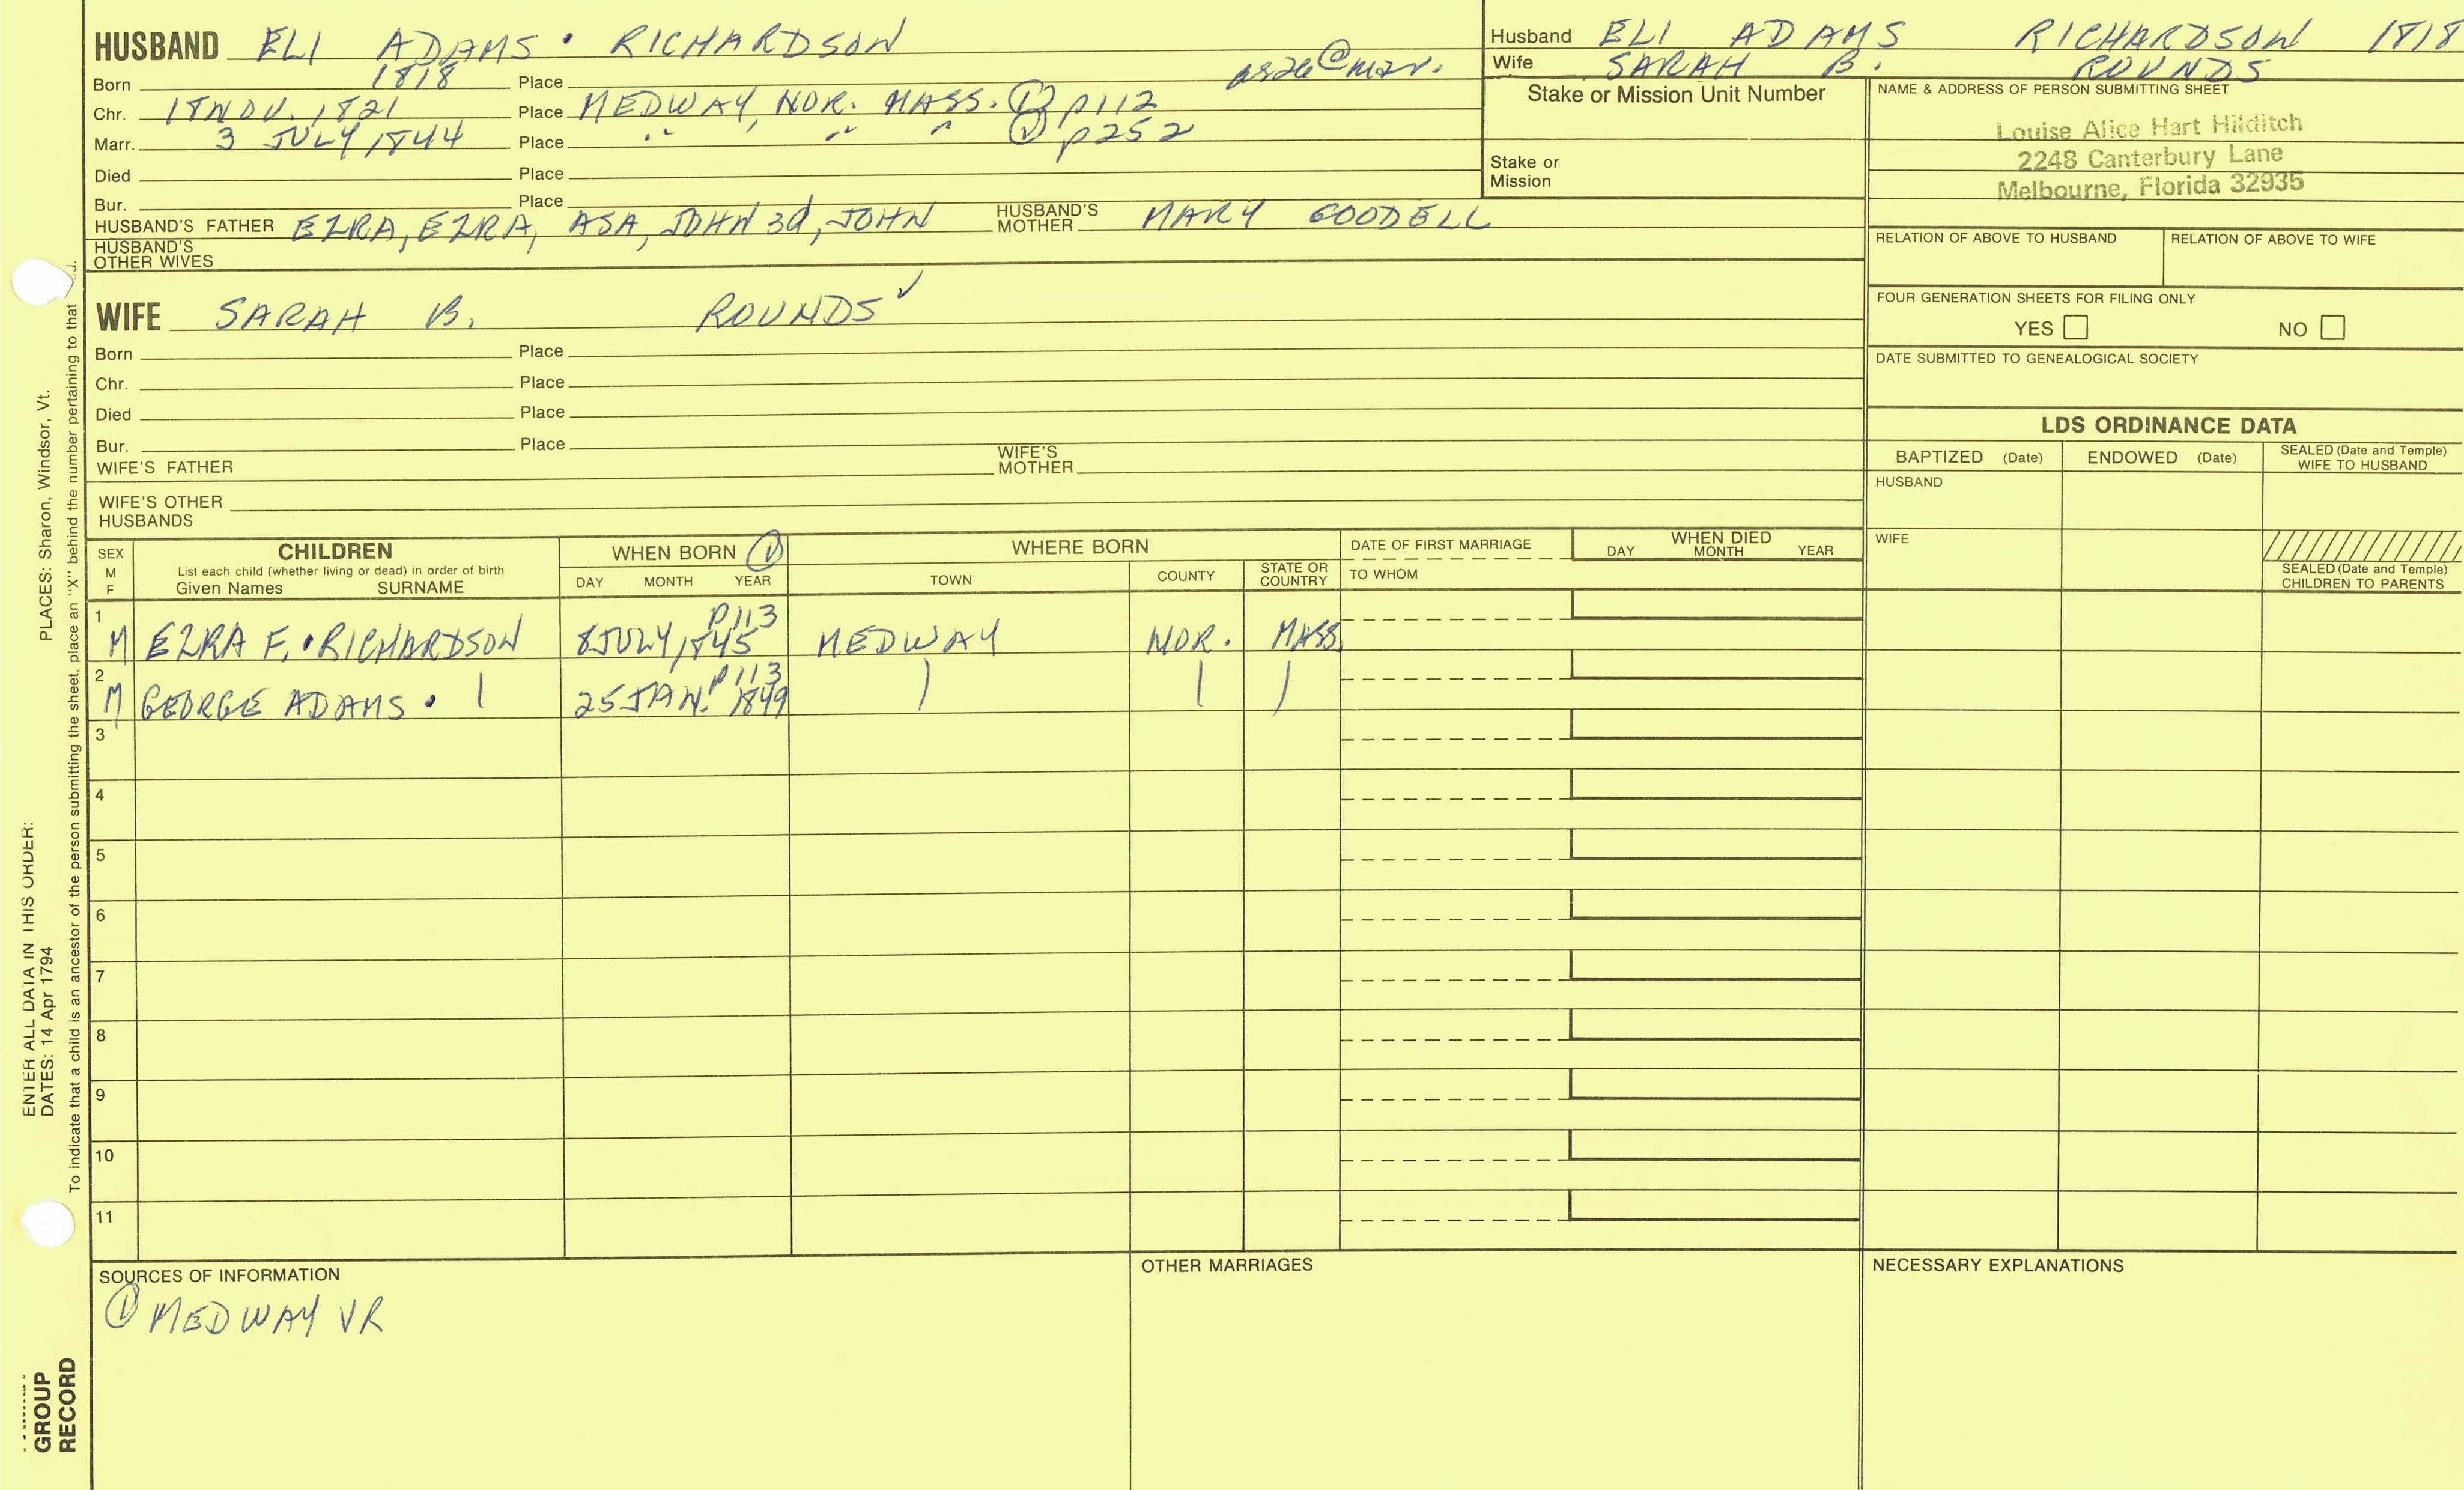 HUSBAND ELI ADAMS • RICHARDSON
Born 1818 Place
Chr. 18 NOV. 1821 Place MEDWAY, NOR. MASS. ① p112
Marr. 3 JULY 1844 Place " " " ① p252
Died Place
Bur. Place
HUSBAND'S FATHER EZRA, EZRA, ASA, JOHN 3d, JOHN HUSBAND'S MOTHER MARY GOODELL
HUSBAND'S OTHER WIVES
Husband ELI ADAMS RICHARDSON 1818
Wife SARAH B. ROUNDS
Stake or Mission Unit Number
Stake or Mission
NAME & ADDRESS OF PERSON SUBMITTING SHEET
Louise Alice Hart Hilditch
2248 Canterbury Lane
Melbourne, Florida 32935
RELATION OF ABOVE TO HUSBAND RELATION OF ABOVE TO WIFE
FOUR GENERATION SHEETS FOR FILING ONLY
YES NO
DATE SUBMITTED TO GENEALOGICAL SOCIETY
WIFE SARAH B. ROUNDS ✓
Born Place
Chr. Place
Died Place
Bur. Place
WIFE'S FATHER WIFE'S MOTHER
WIFE'S OTHER HUSBANDS
LDS ORDINANCE DATA
BAPTIZED (Date) ENDOWED (Date) SEALED (Date and Temple) WIFE TO HUSBAND
HUSBAND
WIFE
SEALED (Date and Temple) CHILDREN TO PARENTS
SEX M F
CHILDREN
List each child (whether living or dead) in order of birth
Given Names SURNAME
WHEN BORN ①
DAY MONTH YEAR
WHERE BORN
TOWN COUNTY STATE OR COUNTRY
DATE OF FIRST MARRIAGE
TO WHOM
WHEN DIED
DAY MONTH YEAR
1 M EZRA F. • RICHARDSON 8 JULY 1845 P113 MEDWAY NOR. MASS
2 M GEORGE ADAMS • | 25 JAN. 1849 P113 | | |
3
4
5
6
7
8
9
10
11
SOURCES OF INFORMATION
① MEDWAY VR
OTHER MARRIAGES
NECESSARY EXPLANATIONS
ENTER ALL DATA IN THIS ORDER:
DATES: 14 Apr 1794 PLACES: Sharon, Windsor, Vt.
To indicate that a child is an ancestor of the person submitting the sheet, place an "X" behind the number pertaining to that
GROUP
RECORD